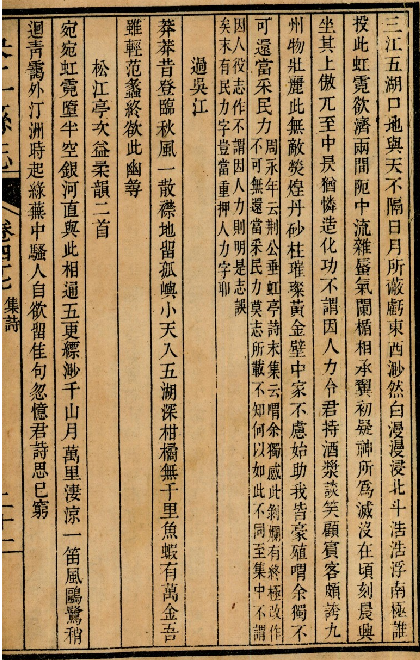 三江五湖口地與天不隔日月所蔽虧東西渺然白漫漫浸北斗浩浩浮南極誰
投此虹霓欲濟兩間阨中流雜蜃氣闌楯相承翼初疑神所為滅沒在頃刻晨興
坐其上傲兀至中昃猶憐造化功不謂因人力令君持酒漿談笑顧賓客頗誇九
州物壯麗此無敵熒煌丹砂柱璀璨黃金壁中家不慮始助我皆豪殖喟余獨不
可還當采民力
周永年云荆公垂虹亭詩末集云喟余獨感此剝爛有終極改作
不可無還當采民力莫志所載不知何以如此不同至集中不謂
因人役志作不謂因人力則明是志誤
矣末有民力字豈當重押人力字耶
過吳江
莽莽昔登臨秋風一散襟地留孤嶼小天入五湖深柑橘無千里魚蝦有萬金吾
雖輕范蠡終欲此幽尋
松江亭次益柔韻二首
宛宛虹霓墮半空銀河直與此相通五更縹渺千山月萬里淒涼一笛風鷗鷺稍
迴青靄外汀洲時起綠蕪中騷人自欲留佳句忽憶君詩思已窮
卷四十七 集詩